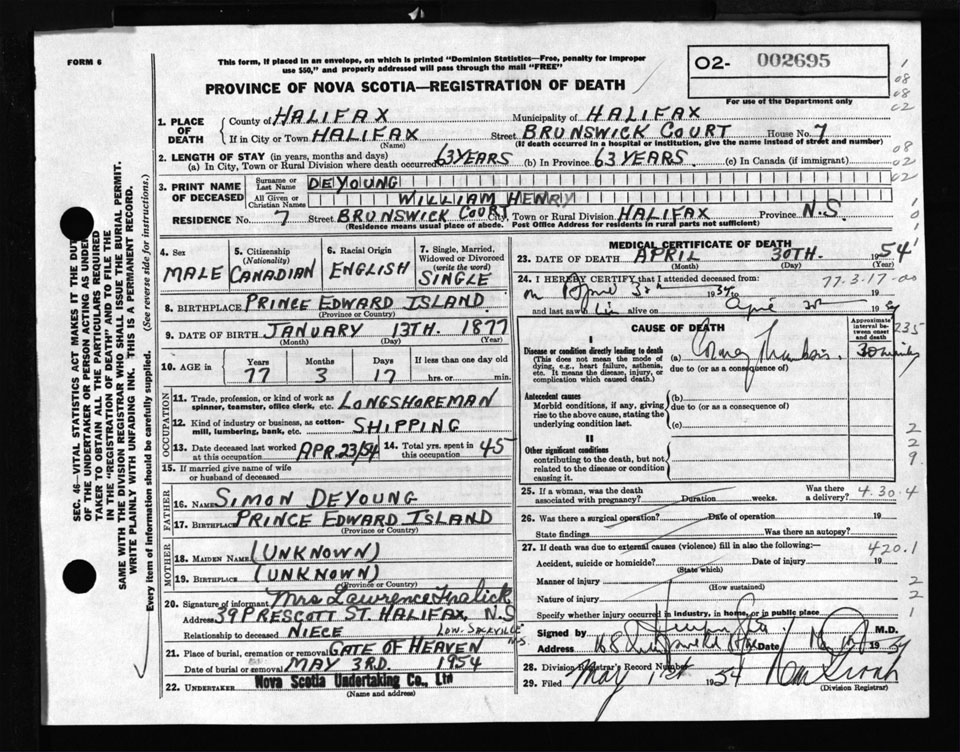 FORM 6
This form, if placed in an envelope, on which is printed "Dominion Statistics—Free, penalty for improper
use $50," and properly addressed will pass through the mail "FREE"
O2- 002695
For use of the Department only
PROVINCE OF NOVA SCOTIA—REGISTRATION OF DEATH
1. PLACE OF DEATH
County of HALIFAX Municipality of HALIFAX
If in City or Town HALIFAX Street BRUNSWICK COURT House No. 7
(Name) (If death occurred in a hospital or institution, give name instead of street and number)
2. LENGTH OF STAY (in years, months and days)
(a) In City, Town or Rural Division where death occurred 63 YEARS (b) In Province 63 YEARS. (c) In Canada (if immigrant)
3. PRINT NAME OF DECEASED
Surname or Last Name DEYOUNG
All Given or Christian Names WILLIAM HENRY
RESIDENCE No. 7 Street BRUNSWICK COURT City, Town or Rural Division HALIFAX Province N.S.
(Residence means usual place of abode. Post Office Address for residents in rural parts not sufficient)
4. Sex
MALE
5. Citizenship
(Nationality)
CANADIAN
6. Racial Origin
ENGLISH
7. Single, Married,
Widowed or Divorced
(write the word)
SINGLE
8. BIRTHPLACE PRINCE EDWARD ISLAND
(Province or Country)
9. DATE OF BIRTH JANUARY 13TH. 1877
(Month) (Day) (Year)
10. AGE in
Years Months Days If less than one day old
77 3 17 hrs. or min.
OCCUPATION
11. Trade, profession, or kind of work as
spinner, teamster, office clerk, etc. LONGSHOREMAN
12. Kind of industry or business, as cotton-
mill, lumbering, bank, etc. SHIPPING
13. Date deceased last worked
at this occupation APR. 23/54
14. Total yrs. spent in
this occupation 45
15. If married give name of wife
or husband of deceased
FATHER
16. NAME SIMON DEYOUNG
17. Birthplace PRINCE EDWARD ISLAND
(Province or Country)
MOTHER
18. MAIDEN NAME (UNKNOWN)
19. BIRTHPLACE (UNKNOWN)
(Province or Country)
20. Signature of informant Mrs Lawrence
Address 39 PRESCOTT ST. HALIFAX, N.S
Relationship to deceased NIECE
21. Place of burial, cremation or removal GATE OF HEAVEN LOW. SACKVILLE N.S.
Date of burial or removal MAY 3RD. 1954
22. UNDERTAKER Nova Scotia Undertaking Co., Ltd
(Name and address)
MEDICAL CERTIFICATE OF DEATH
23. DATE OF DEATH APRIL 30TH. 1954
(Month) (Day) (Year)
24. I HEREBY CERTIFY that I attended deceased from: 77-3-17-00
on April 30th 1954 to 19
and last saw him alive on April 30th 19 54
CAUSE OF DEATH
Approximate
interval between
onset
and death
I
Disease or condition directly leading to death
(This does not mean the mode of
dying, e.g., heart failure, asthenia,
etc. It means the disease, injury, or
complication which caused death.)
(a) Coronary Thrombosis. 30 minutes
due to (or as a consequence of)
Antecedent causes
Morbid conditions, if any, giving
rise to the above cause, stating the
underlying condition last.
(b)
due to (or as a consequence of)
(c)
II
Other significant conditions
contributing to the death, but not
related to the disease or condition
causing it.
25. If a woman, was the death
associated with pregnancy? Duration weeks. Was there
a delivery? 4.30.4
26. Was there a surgical operation? Date of operation 19
State findings Was there an autopsy?
27. If death was due to external causes (violence) fill in also the following:— 420.1
Accident, suicide or homicide? Date of injury 19
(State which)
Manner of injury
(How sustained)
Nature of injury
Specify whether injury occurred in industry, in home, or in public place
Signed by M.D.
Address 168 Date 19 54
28. Division Registrar's Record Number
29. Filed May 1st 1954
(Division Registrar)
SEC. 46—VITAL STATISTICS ACT MAKES IT THE DUTY
OF THE UNDERTAKER OR PERSON ACTING AS UNDER-
TAKER TO OBTAIN ALL THE PARTICULARS REQUIRED
IN THE "REGISTRATION OF DEATH" AND TO FILE THE
SAME WITH THE DIVISION REGISTRAR WHO SHALL ISSUE THE BURIAL PERMIT.
WRITE PLAINLY WITH UNFADING INK. THIS IS A PERMANENT RECORD.
Every item of information should be carefully supplied. (See reverse side for instructions.)
1
08
08
02
08
02
02
1
0
1
235
2
2
9
2
2
1